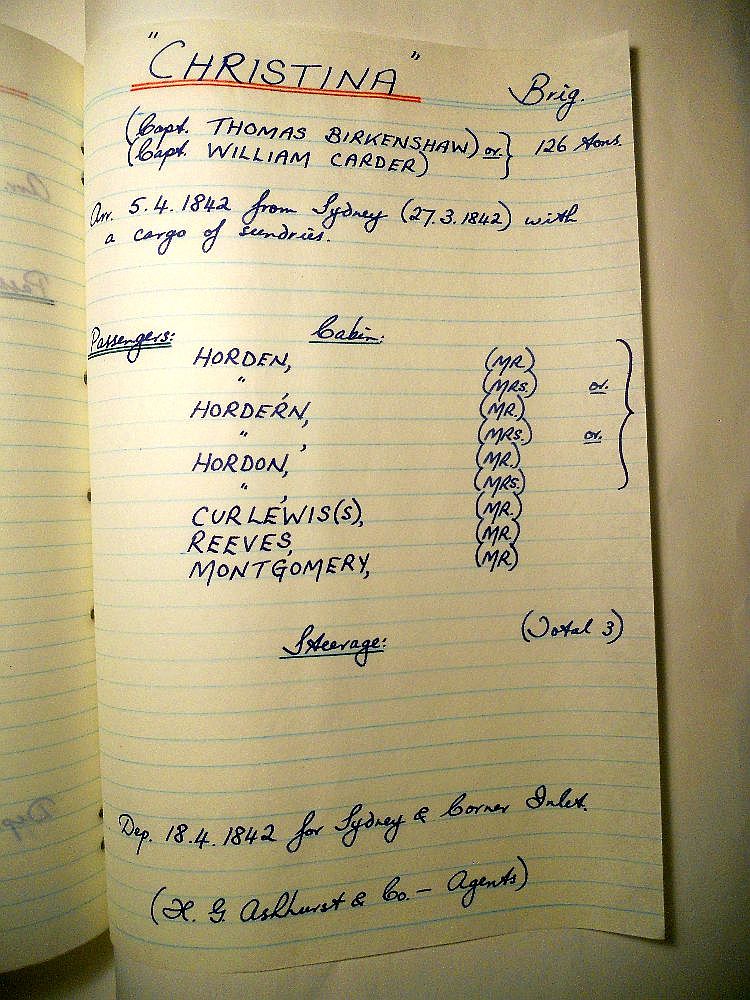 "CHRISTINA"
Brig.
(Capt. THOMAS BIRKENSHAW) or. } 126 tons.
(Capt. WILLIAM CARDER)
Arr. 5.4.1842 from Sydney (27.3.1842) with
a cargo of sundries.
Passengers: Cabin:
HORDEN, (MR.)
" , (MRS.) or.
HORDERN, (MR.)
" , (MRS.) or.
HORDON, (MR.)
" , (MRS.)
CURLEWIS(S), (MR.)
REEVES, (MR.)
MONTGOMERY, (MR)
Steerage: (Total 3)
Dep. 18.4.1842 for Sydney & Corner Inlet.
(H. G. Ashhurst & Co. – Agents)